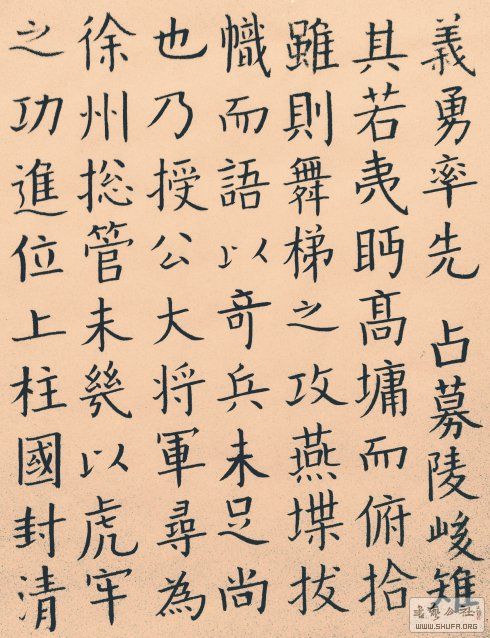 義勇率先 占募陵峻雉
其若夷眄髙墉而俯拾
雖則舞梯之攻燕堞拔
幟而語以奇兵未足尚
也乃授公大将軍尋為
徐州捴管未幾以虎牢
之功進位上柱國封清
WWW.SHUFA.ORG